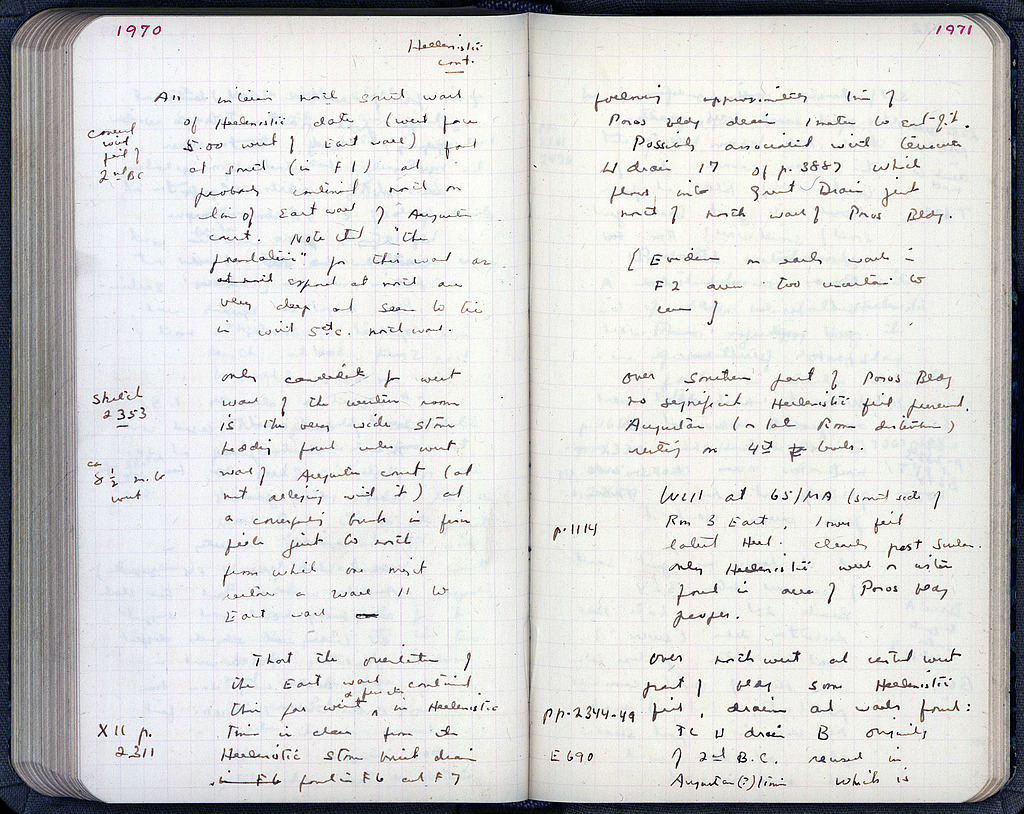 1970
Hellenistic
cont.
A11 interior north south wall
of Hellenistic date (west face
5.00 west of East wall) found
at south (in F1) and
probably continued north on
line of East wall of Augustan
court. Note that "the
foundations" for this wall as
exposed at north are
very deep and seem to tie
in with 5th c. north wall.
covered
with
fill of
2nd BC
only candidate for west
wall of the western room
is the very wide stone
bedding found under west
wall of Augustan court (and
not aligning with it) and
a corresponding break in
just to north
from which one might
restore a wall 11 to
East wall
Sketch
2353
ca
8 1/2 m. to
west
That the orientation of
the East wall continued
this far west in Hellenistic
time is clear from the
Hellenistic stone built drain
in F6 found in F6 and F7
X 11 p.
2311
1971
following approximately line of
Poros bldg drain 1 meter to east of it.
Possibly associated with terracotta
W drain 17 of p. 3887 which
flows into Great Drain just
north of north wall of Poros Bldg.
[Evidence on early walls in
F2 area too uncertain to
]
Over southern part of Poros Bldg
no significant Hellenistic fill preserved.
Augustan (or late Roman disturbance)
resting on 4th levels.
Well at 65/MA (south side of
Rm 3 East, lower fill
latest Hell. clearly post Sullan.
only Hellenistic well or cistern
found in area of Poros bldg
proper.
p. 1114
Over north west and central west
part of bldg some Hellenistic
fill, drains and walls found:
TC W drain B originally
of 2nd B.C. reused in
Augustan(?) time which is
pp. 2344-49
E 690